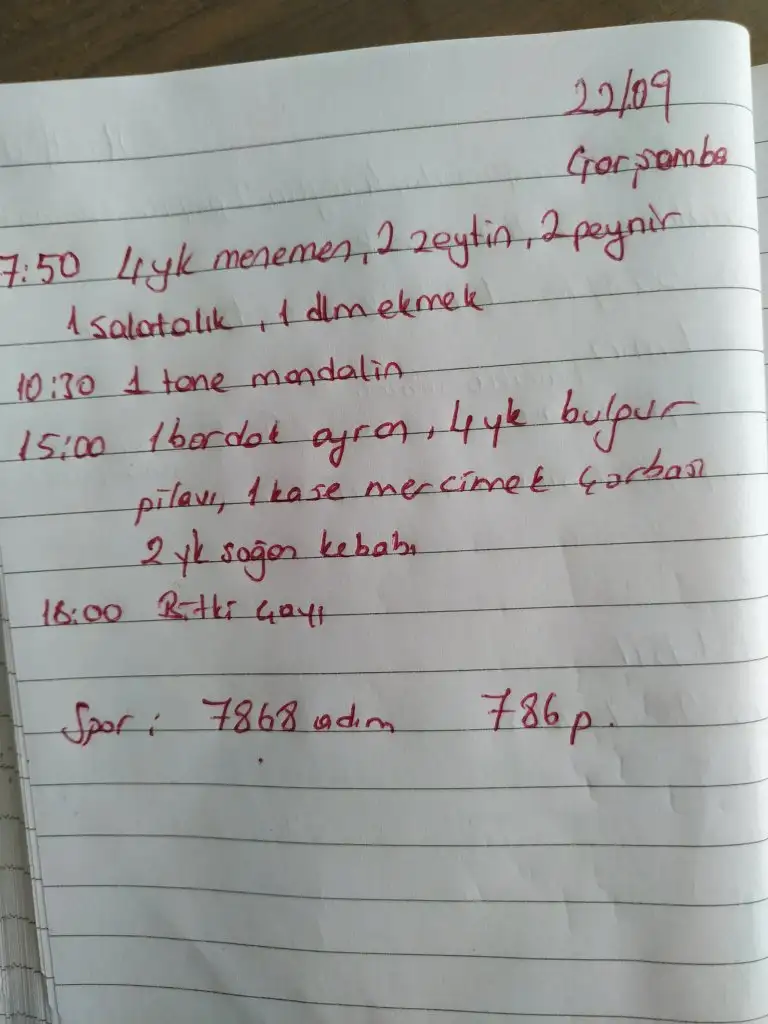 22/09
Çarşamba
7:50 4yk menemen, 2 zeytin, 2 peynir
1 salatalık, 1 dlm ekmek
10:30 1 tane mandalin
15:00 1 bardak ayran, 4 yk bulgur
pilavı, 1 kase mercimek çorbası
2 yk soğan kebabı
18:00 Bitki çayı
Spor: 7868 adım 786 p.